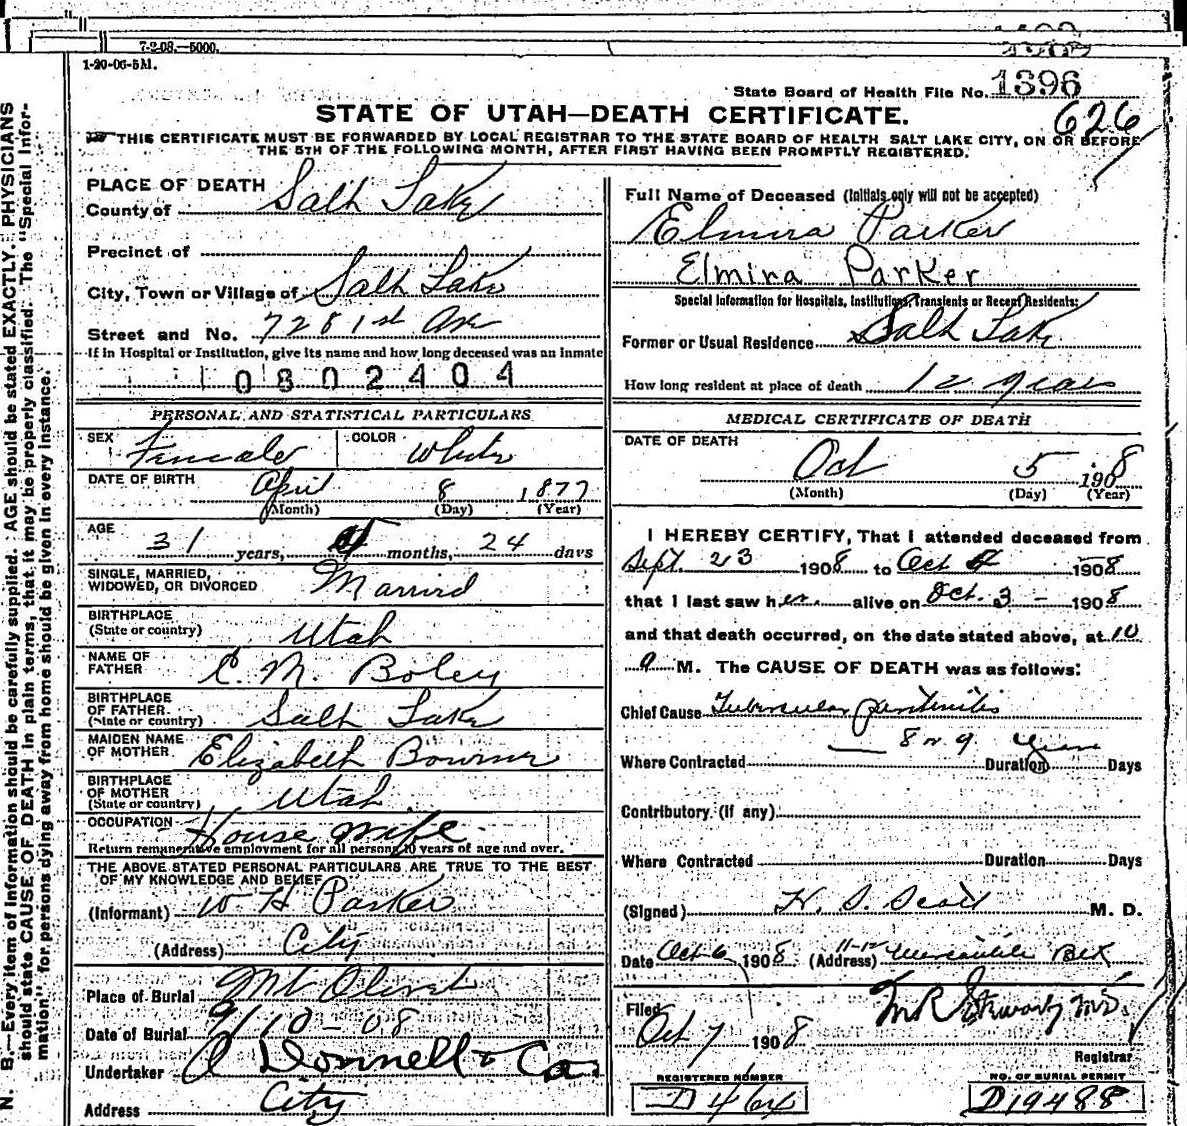 7-2-08.—5000.
1-20-06-5M.
State Board of Health File No. 1396
626
STATE OF UTAH—DEATH CERTIFICATE.
THIS CERTIFICATE MUST BE FORWARDED BY LOCAL REGISTRAR TO THE STATE BOARD OF HEALTH SALT LAKE CITY, ON OR BEFORE
THE 5TH OF THE FOLLOWING MONTH, AFTER FIRST HAVING BEEN PROMPTLY REGISTERED.
N. B.—Every item of information should be carefully supplied. AGE should be stated EXACTLY. PHYSICIANS
should state CAUSE OF DEATH in plain terms, that it may be properly classified. The "Special Infor-
mation" for persons dying away from home should be given in every instance.
PLACE OF DEATH
County of Salt Lake
Precinct of
City, Town or Village of Salt Lake
Street and No. 728 1st Ave
If in Hospital or Institution, give its name and how long deceased was an inmate
0802404
PERSONAL AND STATISTICAL PARTICULARS
SEX Female COLOR White
DATE OF BIRTH April 8 1877
(Month) (Day) (Year)
AGE 31 years, months, 24 days
SINGLE, MARRIED,
WIDOWED, OR DIVORCED Married
BIRTHPLACE
(State or country) Utah
NAME OF
FATHER C. M. Boley
BIRTHPLACE
OF FATHER
(State or country) Salt Lake
MAIDEN NAME
OF MOTHER Elizabeth Bowmer
BIRTHPLACE
OF MOTHER
(State or country) Utah
OCCUPATION House Wife
Return remunerative employment for all persons 10 years of age and over.
THE ABOVE STATED PERSONAL PARTICULARS ARE TRUE TO THE BEST
OF MY KNOWLEDGE AND BELIEF
(Informant) W H Parker
(Address) City
Place of Burial Mt Olivet
Date of Burial 9/10-08
Undertaker O Donnell & Co.
Address City
Full Name of Deceased (Initials only will not be accepted)
Elmira Parker
Elmira Parker
Special Information for Hospitals, Institutions, Transients or Recent Residents:
Former or Usual Residence Salt Lake
How long resident at place of death 12 years
MEDICAL CERTIFICATE OF DEATH
DATE OF DEATH
Oct 5 1908
(Month) (Day) (Year)
I HEREBY CERTIFY, That I attended deceased from
Sept. 23 1908 to Oct 1908
that I last saw her alive on Oct. 3 - 1908
and that death occurred, on the date stated above, at 10
a M. The CAUSE OF DEATH was as follows:
Chief Cause Tubercular peritonitis
8 or 9 years
Where Contracted Duration Days
Contributory (if any)
Where Contracted Duration Days
(Signed) H. S. Scott M. D.
Date Oct 6 1908 (Address) 11-12 Mercantile Blk
Filed
Oct 7 1908
M R Stewart M.D.
Registrar
REGISTERED NUMBER NO. OF BURIAL PERMIT
D 464 D19488